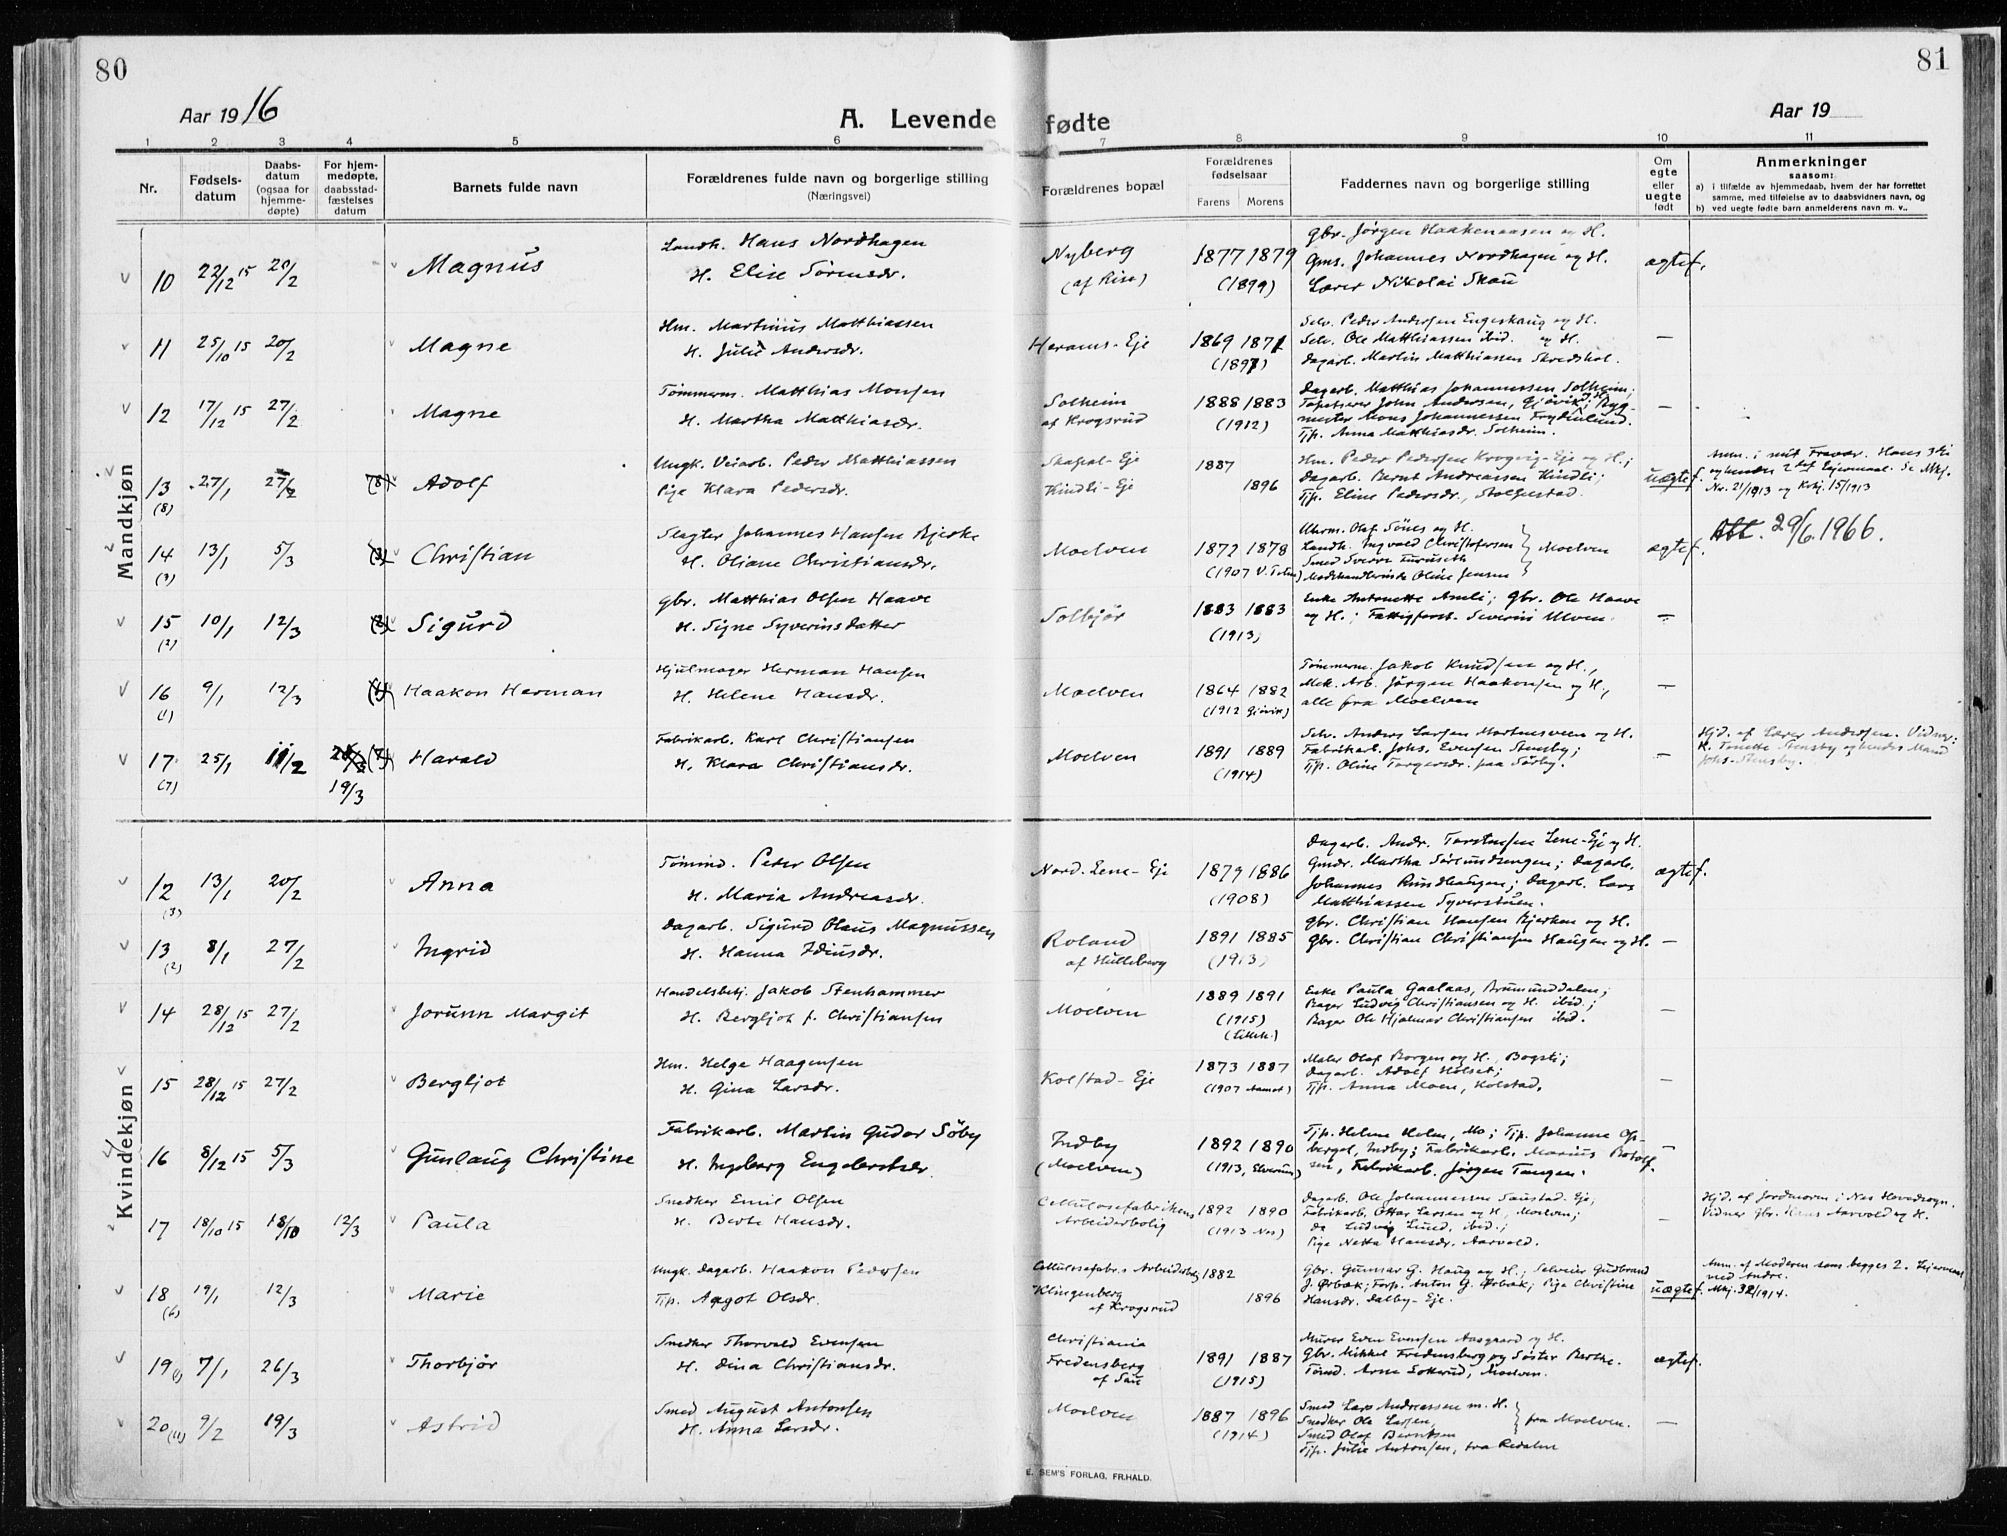 80
81
Aar 1916
A. Levende fødte
Aar 19
1 2 3 4 5 6 7 8 9 10 11
Nr.
Fødsels-
datum
Daabs-
datum
(ogsaa for
hjemme-
døpte)
For hjem-
medøpte,
daabsstad-
fæstelses
datum
Barnets fulde navn
Forældrenes fulde navn og borgerlige stilling
(Næringsvei)
Forældrenes bopæl
Forældrenes
fødselsaar
Farens Morens
Faddernes navn og borgerlige stilling
Om
egte
eller
uegte
født
Anmerkninger
saasom:
a) i tilfælde av hjemmedaab, hvem der har forrettet
samme, med tilføielse av to daabsvidners navn, og
b) ved uegte fødte barn anmelderens navn m. v..
Mandkjøn
10 22/12 15 20/2 Magnus
Landh. Hans Nordhagen
H. Elise Sørensdr.
Nyberg
(af Rise)
1877 1879
(1899)
Gbr. Jørgen Haakenaasen og H.
Gms. Johannes Nordhagen og H.
Lærer Nikolai Skau
ægtef.
11 25/10 15 20/2 Magne
Hm. Martinus Matthiassen
H. Julie Andersdr.
Herams-Eje
1869 1871
(1897)
Selv. Peder Andersen Engeskaug og H.
Selv. Ole Matthiassen ibid. og H.
Dagarb. Martin Matthiassen Skredshol.
—
12 17/12 15 27/2 Magne
Tømmerm. Matthias Monsen
H. Martha Matthiasdr.
Solheim
af Krogsrud
1888 1883
(1912)
Dagarb. Matthias Johannessen Solheim;
Tapetserer John Andersen, Gjøvik; Byg-
mester Mons Johannessen Frydenlund.
Tjp. Anna Matthiasdr. Solheim.
—
13 27/1 27/2 (8) Adolf
(8)
Ungk. Veiarb. Peder Matthiassen
Pige Klara Pedersdr.
Skafsal-Eje
Kindli-Eje
1887
1896
Hm. Peder Pedersen Krogvig-Eje og H.;
Dagarb. Bernt Andreassen Kindli;
Tjp. Eline Pedersdr., Stolpestad.
uægtef.
Anm. i mit Fravær. Hans 3die
og hendes 2det Leiermaal. Se Mkj.
Nr. 21/1913 og Kvkj. 15/1913
14 13/1 5/3 (3) Christian
(3)
Slagter Johannes Hansen Bjerke
H. Oliane Christiansdr.
Moelven
1872 1878
(1907 V. Toten)
Uhrm. Olaf Sönes og H.
Landh. Ingvald Christofersen
Smed Sverre Furuseth
Modehandlerinde Oline Jensen
Moelven
ægtef.
Att. 29/6.1966.
15 10/1 12/3 (2) Sigurd
(2)
Gbr. Matthias Olsen Haave
H. Signe Syverinsdatter
Solbjør
1883 1883
(1913)
Enke Antonette Amli; Gbr. Ole Haave
og H.; Fattigforst. Severin Ulven.
—
16 9/1 12/3 (1) Haakon Herman
(1)
Hjulmager Herman Hansen
H. Helene Hansdr.
Moelven
1864 1882
(1912 Gjøvik)
Tømmerm. Jakob Knudsen og H.,
Mek. Arb. Jørgen Haakonsen og H.,
alle fra Moelven
—
17 25/1 11/2 (7) Harald
(7) 19/3
Fabrikarb. Karl Christiansen
H. Klara Christiansdr.
Moelven
1891 1889
(1914)
Selv. Anders Larsen Mortensveen og H.
Fabrikarb. Johs. Evensen Stensby;
Tjp. Oline Torgersdr. paa Sørby.
—
Hjd. af Lærer Andersen. Vidner:
H. Tonette Stensby og hendes Mand
Johs. Stensby.
Kvindekjøn
12 13/1 20/2 Anna
(3)
Tømmd. Peder Olsen
H. Maria Andreasdr.
Nord. Lene-Eje
1879 1886
(1908)
Dagarb. Andr. Torstensen Lene-Eje og H.
Gmdr. Martha Sørlundsengen; Dagarb.
Johannes Rundhaugen; Dagarb. Lars
Matthiassen Syverstuen.
ægtef.
13 8/1 27/2 Ingrid
(2)
Dagarb. Sigurd Olaus Magnussen
H. Hanna Idiusdr.
Roland
af Hulleberg
1891 1885
(1913)
Gbr. Christian Hansen Bjerken og H.
Gbr. Christian Christiansen Haugen og H.
—
14 28/12 15 27/2 Jorunn Margit
Handelsbetj. Jakob Stenhammer
H. Bergljot f. Christiansen
Moelven
1889 1891
(1915)
(Lilleh.)
Enke Paula Gaalaas, Brumunddalen;
Bager Ludvig Christiansen og H. ibid.;
Bager Ole Hjalmar Christiansen ibid.
—
15 28/12 15 27/2 Bergljot
Hm. Helge Haagensen
H. Gina Larsdr.
Kolstad-Eje
1873 1887
(1907 Aamot)
Maler Olaf Borgen og H., Bogsti;
Dagarb. Adolf Holset;
Tjp. Anna Moen, Kolstad.
—
16 8/12 15 5/3 Gunlaug Christine
Fabrikarb. Martin Gudar Søby
H. Ingeborg Engebretsdr.
Indby
(Moelven)
1892 1890
(1913, Elverum)
Tjp. Helene Holm, Mo; Tjp. Johanne Op-
berget, Indby; Fabrikarb. Marius Botolf-
sen, Fabrikarb. Jørgen Tangen.
—
17 18/10 15 18/10 12/3 Paula
Snedker Emil Olsen
H. Berte Hansdr.
Cellulosefabrikens
Arbeiderbolig
1892 1890
(1913 Nes)
Dagarb. Ole Johannessen Saustad-Eje;
Fabrikarb. Ottar Larsen og H., Moelven;
do Ludvig Lund, ibid.;
Pige Netta Hansdr. Aarvold.
—
Hjd. af Jordmoren i Nes Hovedsogn.
Vidner Gbr. Hans Aarvold og H.
18 19/1 12/3 Marie
(6)
Ungk. Dagarb. Haakon Pedersen
Tjp. Aagot Olsdr.
Cellulosefabr.s Arbeiderbolig
Klingenberg
af Krogsrud
1882
1896
Gbr. Gunnar G. Haug og H.; Selveier Gudbrand
J. Ørbæk; Forp. Anton G. Ørbæk; Pige Christine
Hansdr. Dalby-Eje.
uægtef.
Anm. af Moderen som begges 2. Leiermaal
med Andre.
Mkj. 32/1914.
19 7/1 26/3 Thorbjør
Snedker Thorvald Evensen
H. Dina Christiansdr.
Christiania
Fredensberg
af Sau
1891 1887
(1915)
Murer Even Evensen Aasgaard og H.
Gbr. Mikkel Fredensberg og Søster Berthe.
Tømd. Arne Sollerud, Moelven.
ægtef.
20 (11) 9/2 19/3 Astrid
Smed August Antonsen
H. Anna Larsdr.
Moelven
1887 1896
(1914)
Smed Lars Andreassen m. H.
Snedker Ole Larsen,
Smed Olaf Berntsen
fra Moelven.
Tjp. Julie Antonsen, fra Redalen
—
E. SEM'S FORLAG, FR.HALD.